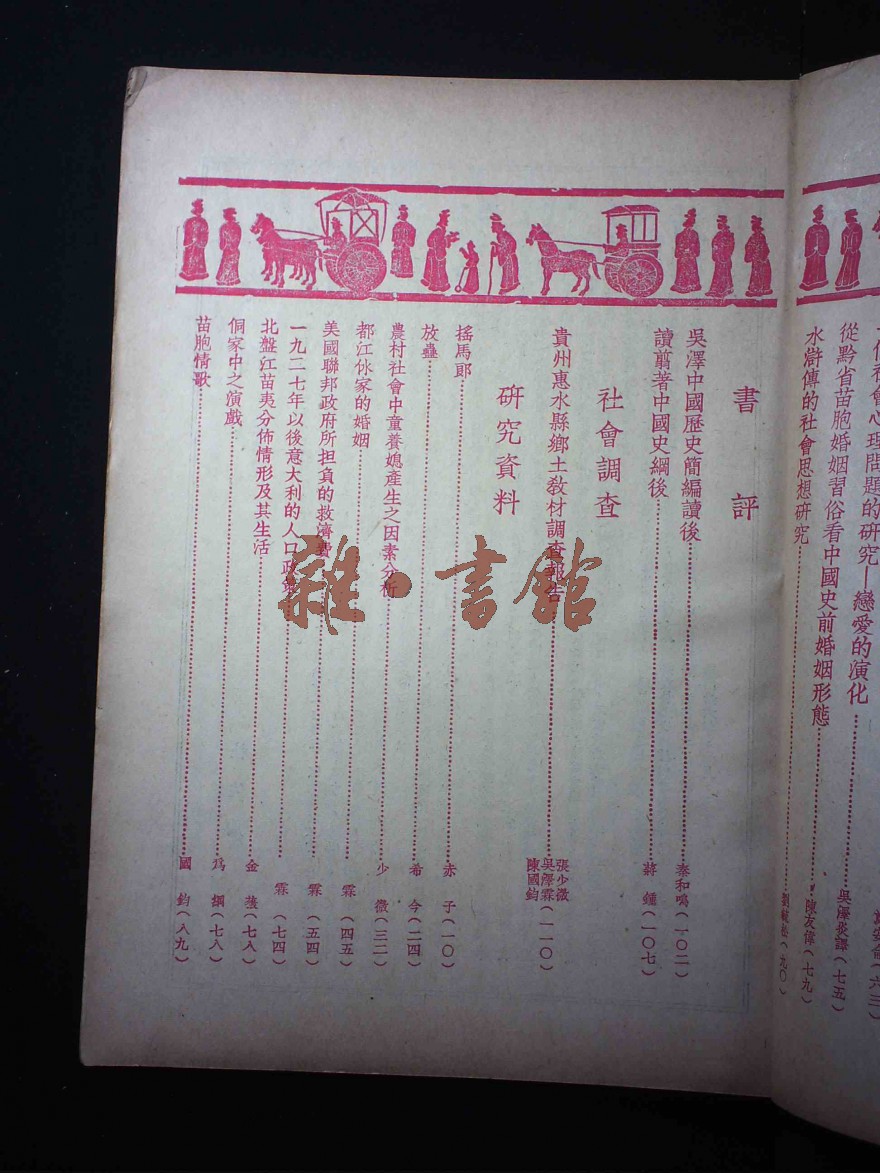 從黔省苗胞婚姻習俗看中國史前婚姻形態……陳友偉(七九)
水滸傳的社會思想研究……(九〇)
書評
吳澤中國歷史簡編讀後……秦和鳴(一〇二)
讀翦著中國史綱後……蔣鍾(一〇七)
社會調查
貴州惠水縣鄉土教材調查報告……張少微 吳澤霖 陳國鈞(一一〇)
研究資料
搖馬郎……赤子(一〇)
放蠱……希今(二四)
農村社會中童養媳產生之因素分析……少微(三二)
都江㐲家的婚姻……霖(四五)
美國聯邦政府所担負的救濟費……霖(五四)
一九二七年以後意大利的人口政策……霖(七四)
北盤江苗夷分佈情形及其生活……金(七八)
侗家中之演戲……為綱(七八)
苗胞情歌……國鈞(八九)
雜·書館